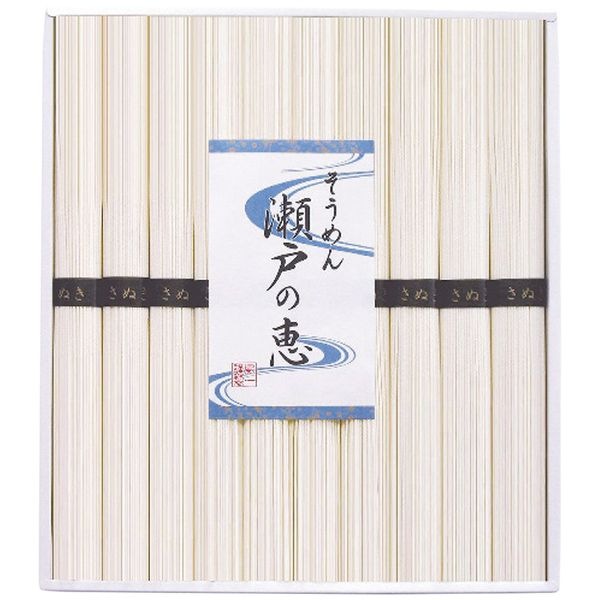 そうめん
瀬戸の恵
ぬき
さぬ
き
さぬ
さぬ
きさぬ
きさぬ